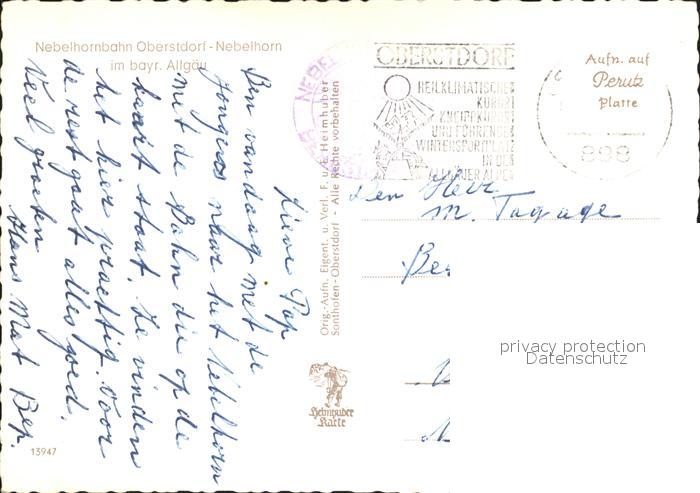 Nebelhornbahn Oberstdorf - Nebelhorn
im bayr. Allgäu
Lieve Pap
Ben vandaag met de
Jongens naar het Nebelhorn
met de Bahn die op de
kaart staat. Ze vinden
het hier prachtig. Voor
de rest gaat alles goed.
Veel groeten
Hans Mat Bep.
13947
Orig.-Aufn. Eigent. u. Verl. F. u. E. Heimhuber
Sonthofen - Oberstdorf Alle Rechte vorbehalten
Heimhuber
Karte
NEBEL
OBERSTDORF
HEILKLIMATISCHER
KURORT
KNEIPPKURORT
UND FÜHRENDER
WINTERSPORTPLATZ
IN DEN
ALLGÄUER ALPEN
Aufn. auf
Perutz
Platte
898
Den Heer
M. Tagage
privacy protection
Datenschutz